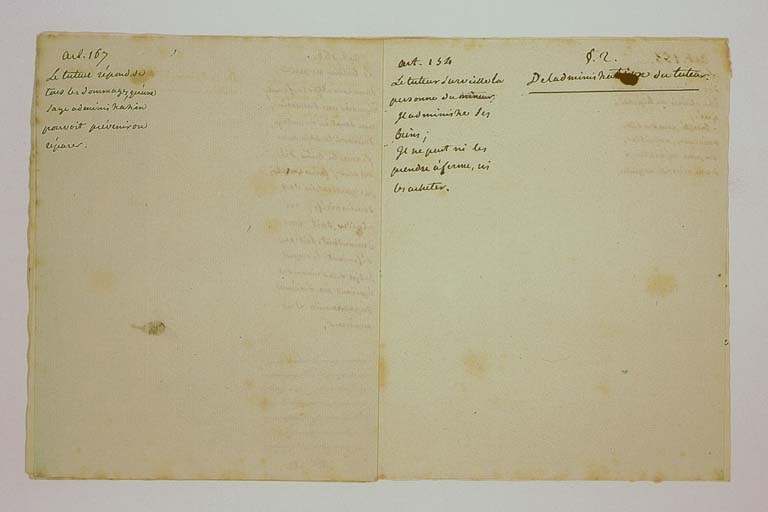 art. 167
Le tuteur répond de
tous les dommages, qu'une
sage administration
pouvoit prévenir ou
réparer.
art. 154
Le tuteur surveille la
personne du mineur,
Il administre ses
biens;
Il ne peut ni les
prendre à ferme, ni
les acheter.
§. 2.
De l'administration du tuteur.